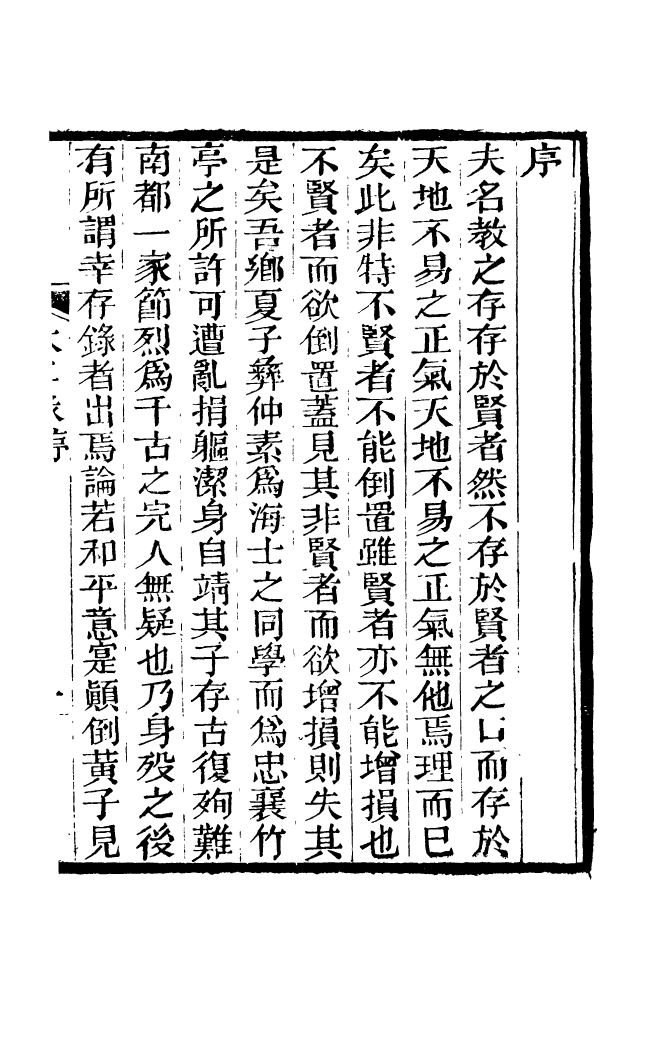 序
夫名教之存存於賢者然不存於賢者之口而存於
天地不易之正氣天地不易之正氣無他焉理而已
矣此非特不賢者不能倒置雖賢者亦不能增損也
不賢者而欲倒置蓋見其非賢者而欲增損則失其
是矣吾鄉夏子彝仲素爲海士之同學而爲忠襄竹
亭之所許可遭亂捐軀潔身自靖其子存古復殉難
南都一家節烈爲千古之完人無疑也乃身歿之後
有所謂幸存錄者出焉論若和平意寔顚倒黃子見
序